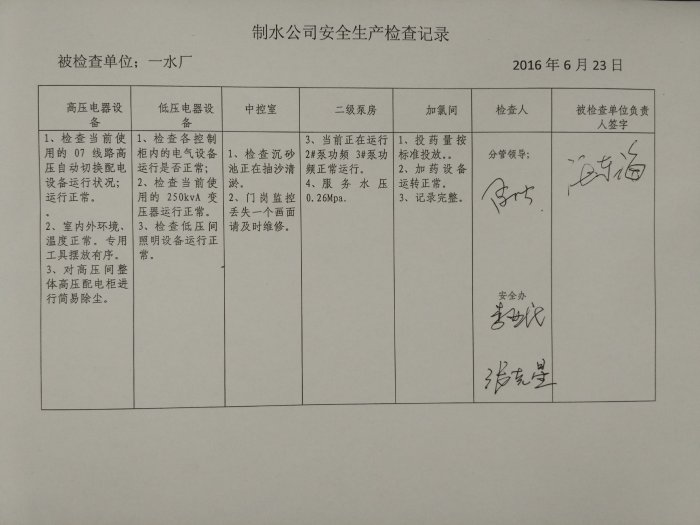 制水公司安全生产检查记录
被检查单位；一水厂
2016 年 6 月 23 日
高压电器设
备
低压电器设
备
中控室
二级泵房
加氯间
检查人
被检查单位负责
人签字
1、检查当前使
用的 07 线路高
压自动切换配电
设备运行状况；
运行正常。
。
2、室内外环境、
温度正常。专用
工具摆放有序。
3、对高压间整
体高压配电柜进
行简易除尘。
1、检查各控制
柜内的电气设备
运行是否正常；
2、检查当前使
用的 250kvA 变
压器运行正常。
3、检查低压间
照明设备运行正
常。
1、检查沉砂
池正在抽沙清
淤。
2、门岗监控
丢失一个画面
请及时维修。
3、当前正在运行
2#泵功频 3#泵功
频正常运行。
4、服务水压
0.26Mpa.
1、投药量按
标准投放。.
2、加药设备
运转正常。
3、记录完整。
分管领导；
安全办
张克星